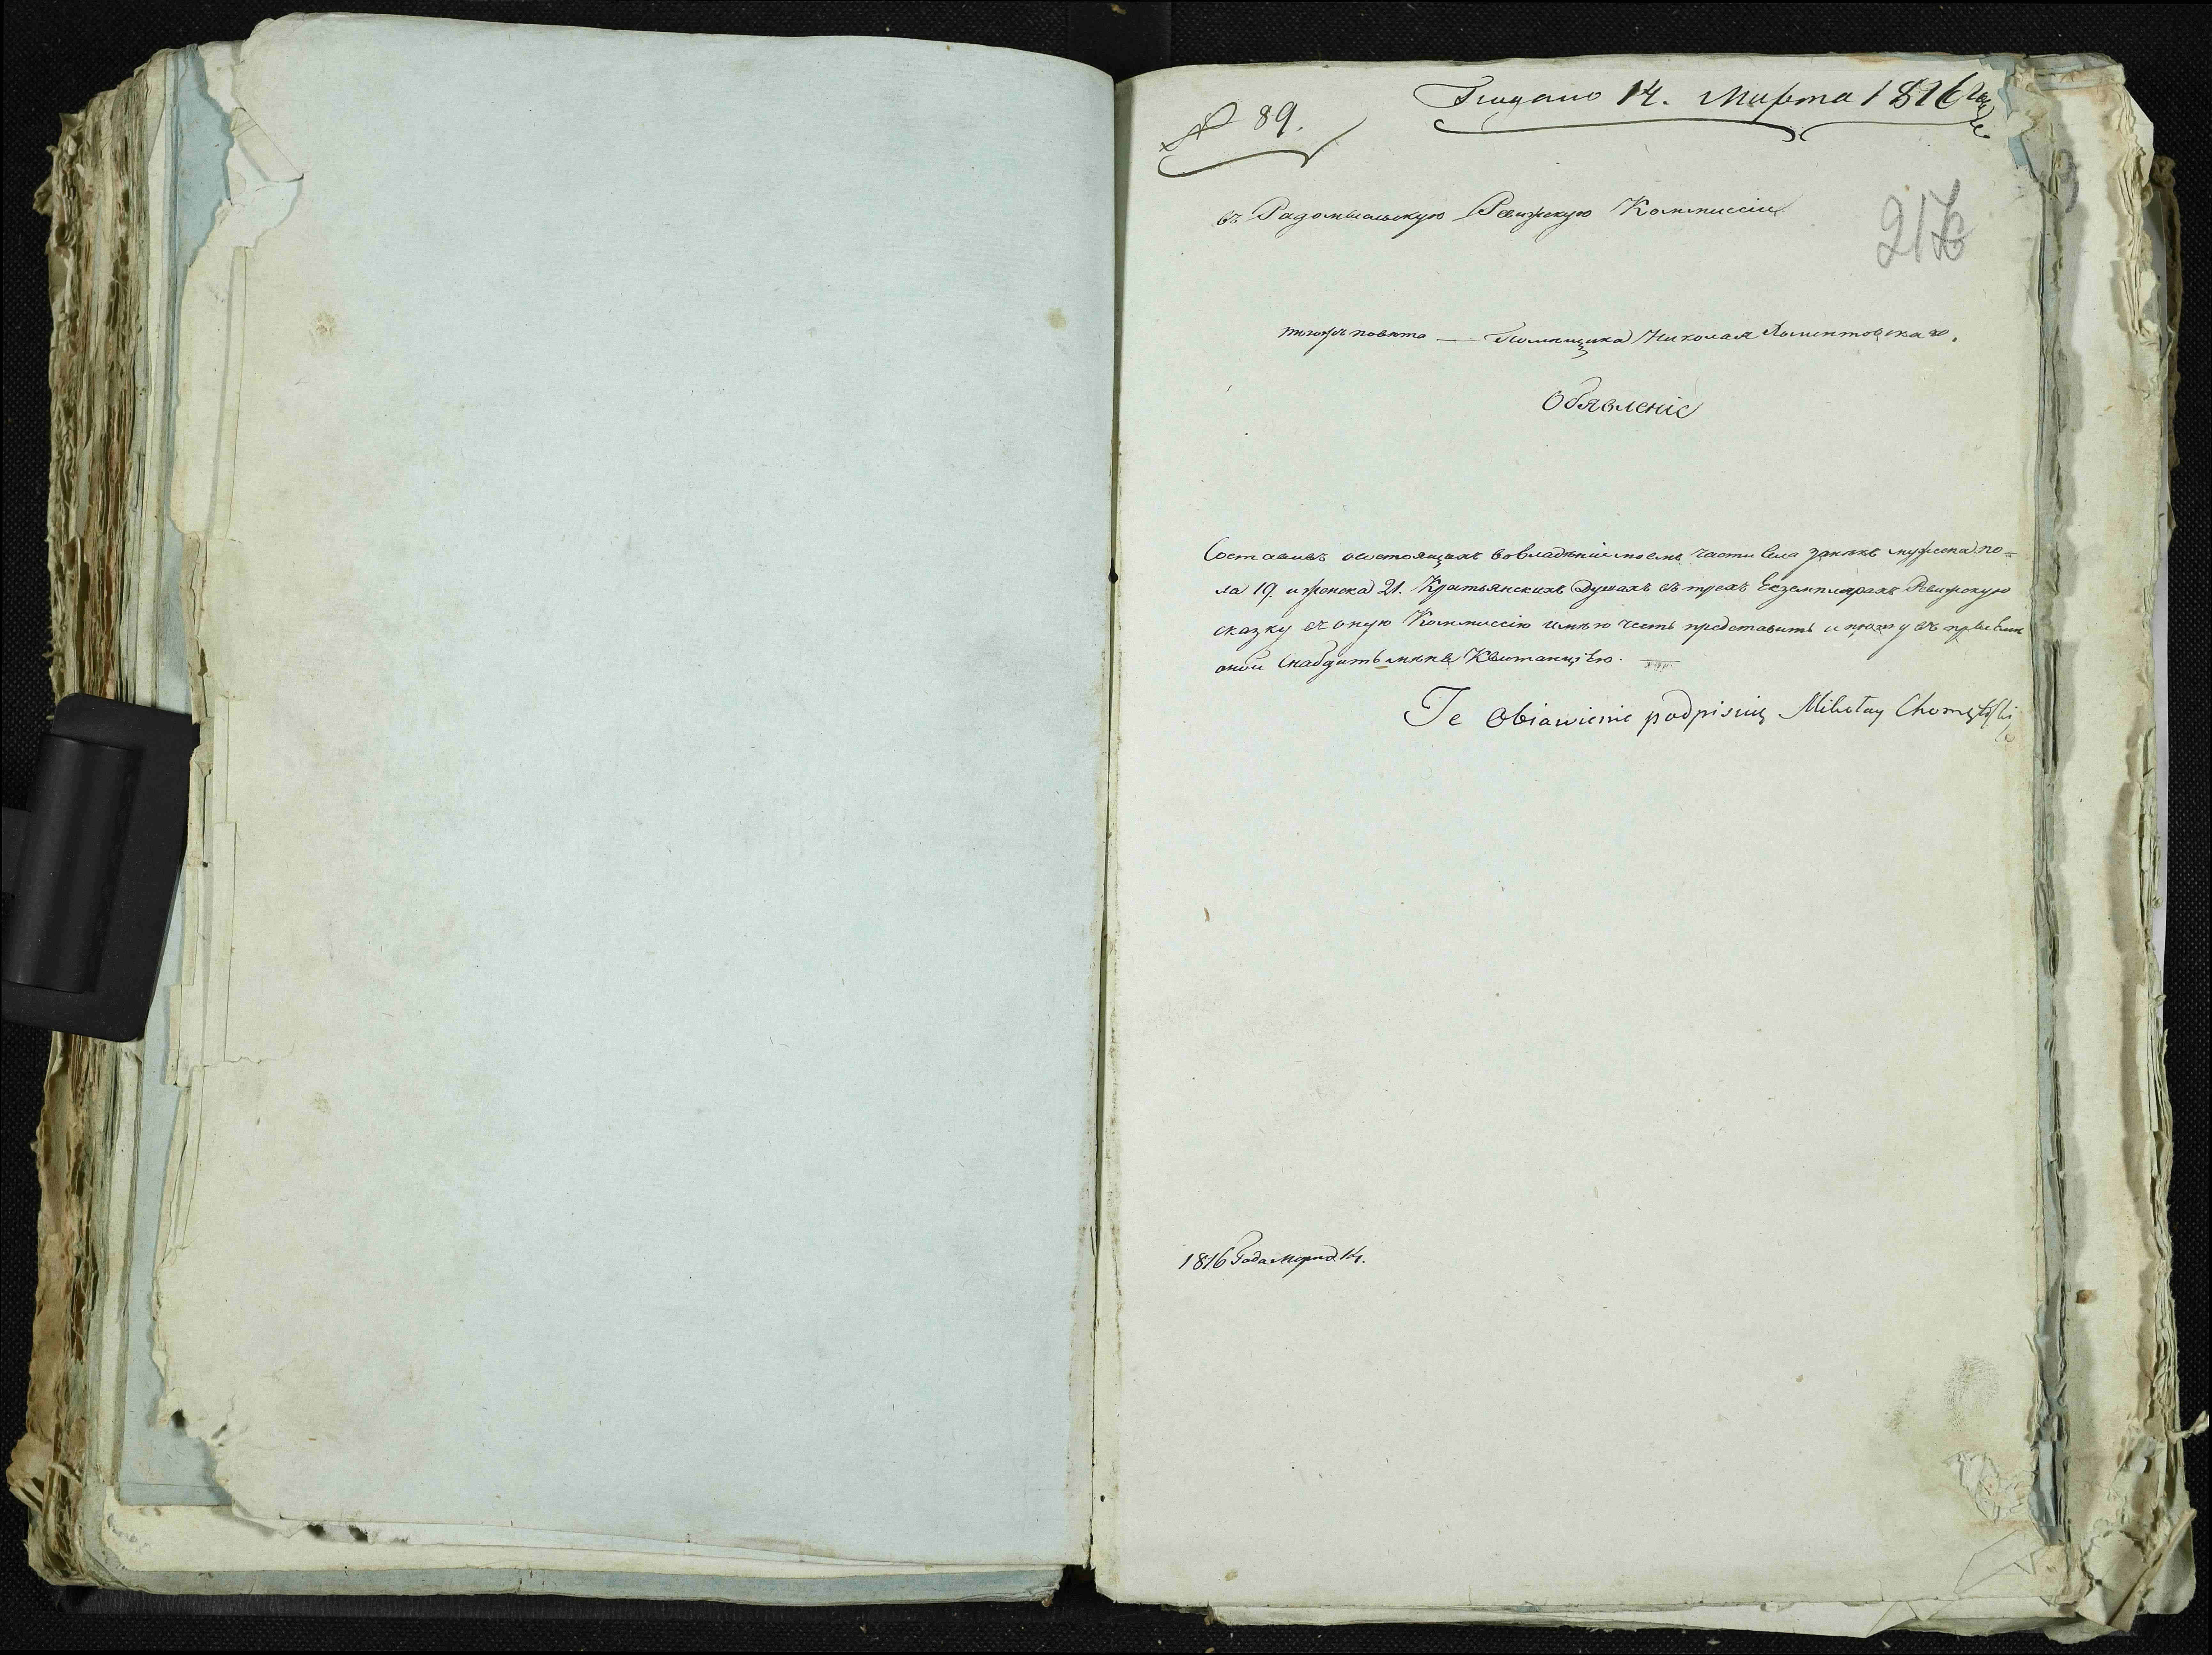 № 89.
Подано 14. Марта 1816 года
въ Радомысльскую Ревизскую Коммиссію
217
тогожъ повета — Помещика Николая Хоментовскаго.
Обявленіе
Составивъ о состоящихъ во владеніи моемъ части села мужеска по=
ла 19. и женска 21. Крестьянскихъ Душахъ въ трехъ Екземплярахъ Ревизскую
сказку въ оную Коммиссію имею честь представить и прошу въ
оной Снабдить мене Квитанціею.
Te Obiawienie podpisuię Mikołay Chomętoſki
1816 Года Марта 14.